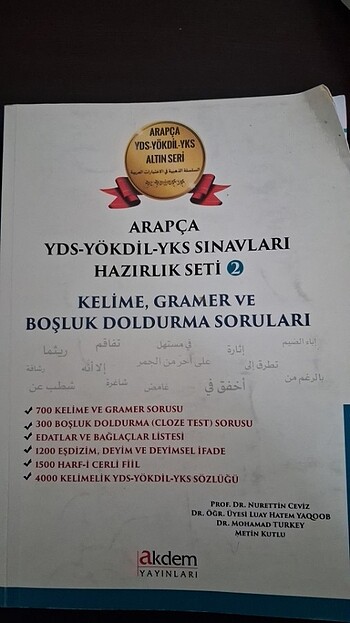 ARAPÇA
YDS-YÖKDİL-YKS
ALTIN SERİ
السلسلة الذهبية في الاختبارات العربية
ARAPÇA
YDS-YÖKDİL-YKS SINAVLARI
HAZIRLIK SETİ 2
KELİME, GRAMER VE
BOŞLUK DOLDURMA SORULARI
إباء الضيم
في مستهل
تفاقم
ريثما
إثارة
على أحر من الجمر
تطرق إلى
إلا أنه
رشاقة
بالرغم من
أخفق في
غامض
شاعرة
شطب عن
✓ 700 KELİME VE GRAMER SORUSU
✓ 300 BOŞLUK DOLDURMA (CLOZE TEST) SORUSU
✓ EDATLAR VE BAĞLAÇLAR LİSTESİ
✓ 1200 EŞDİZİM, DEYİM VE DEYİMSEL İFADE
✓ 1500 HARF-İ CERLİ FİİL
✓ 4000 KELİMELİK YDS-YÖKDİL-YKS SÖZLÜĞÜ
PROF. DR. NURETTİN CEVİZ
DR. ÖĞR. ÜYESİ LUAY HATEM YAQOOB
DR. MOHAMAD TURKEY
METİN KUTLU
akdem
YAYINLARI